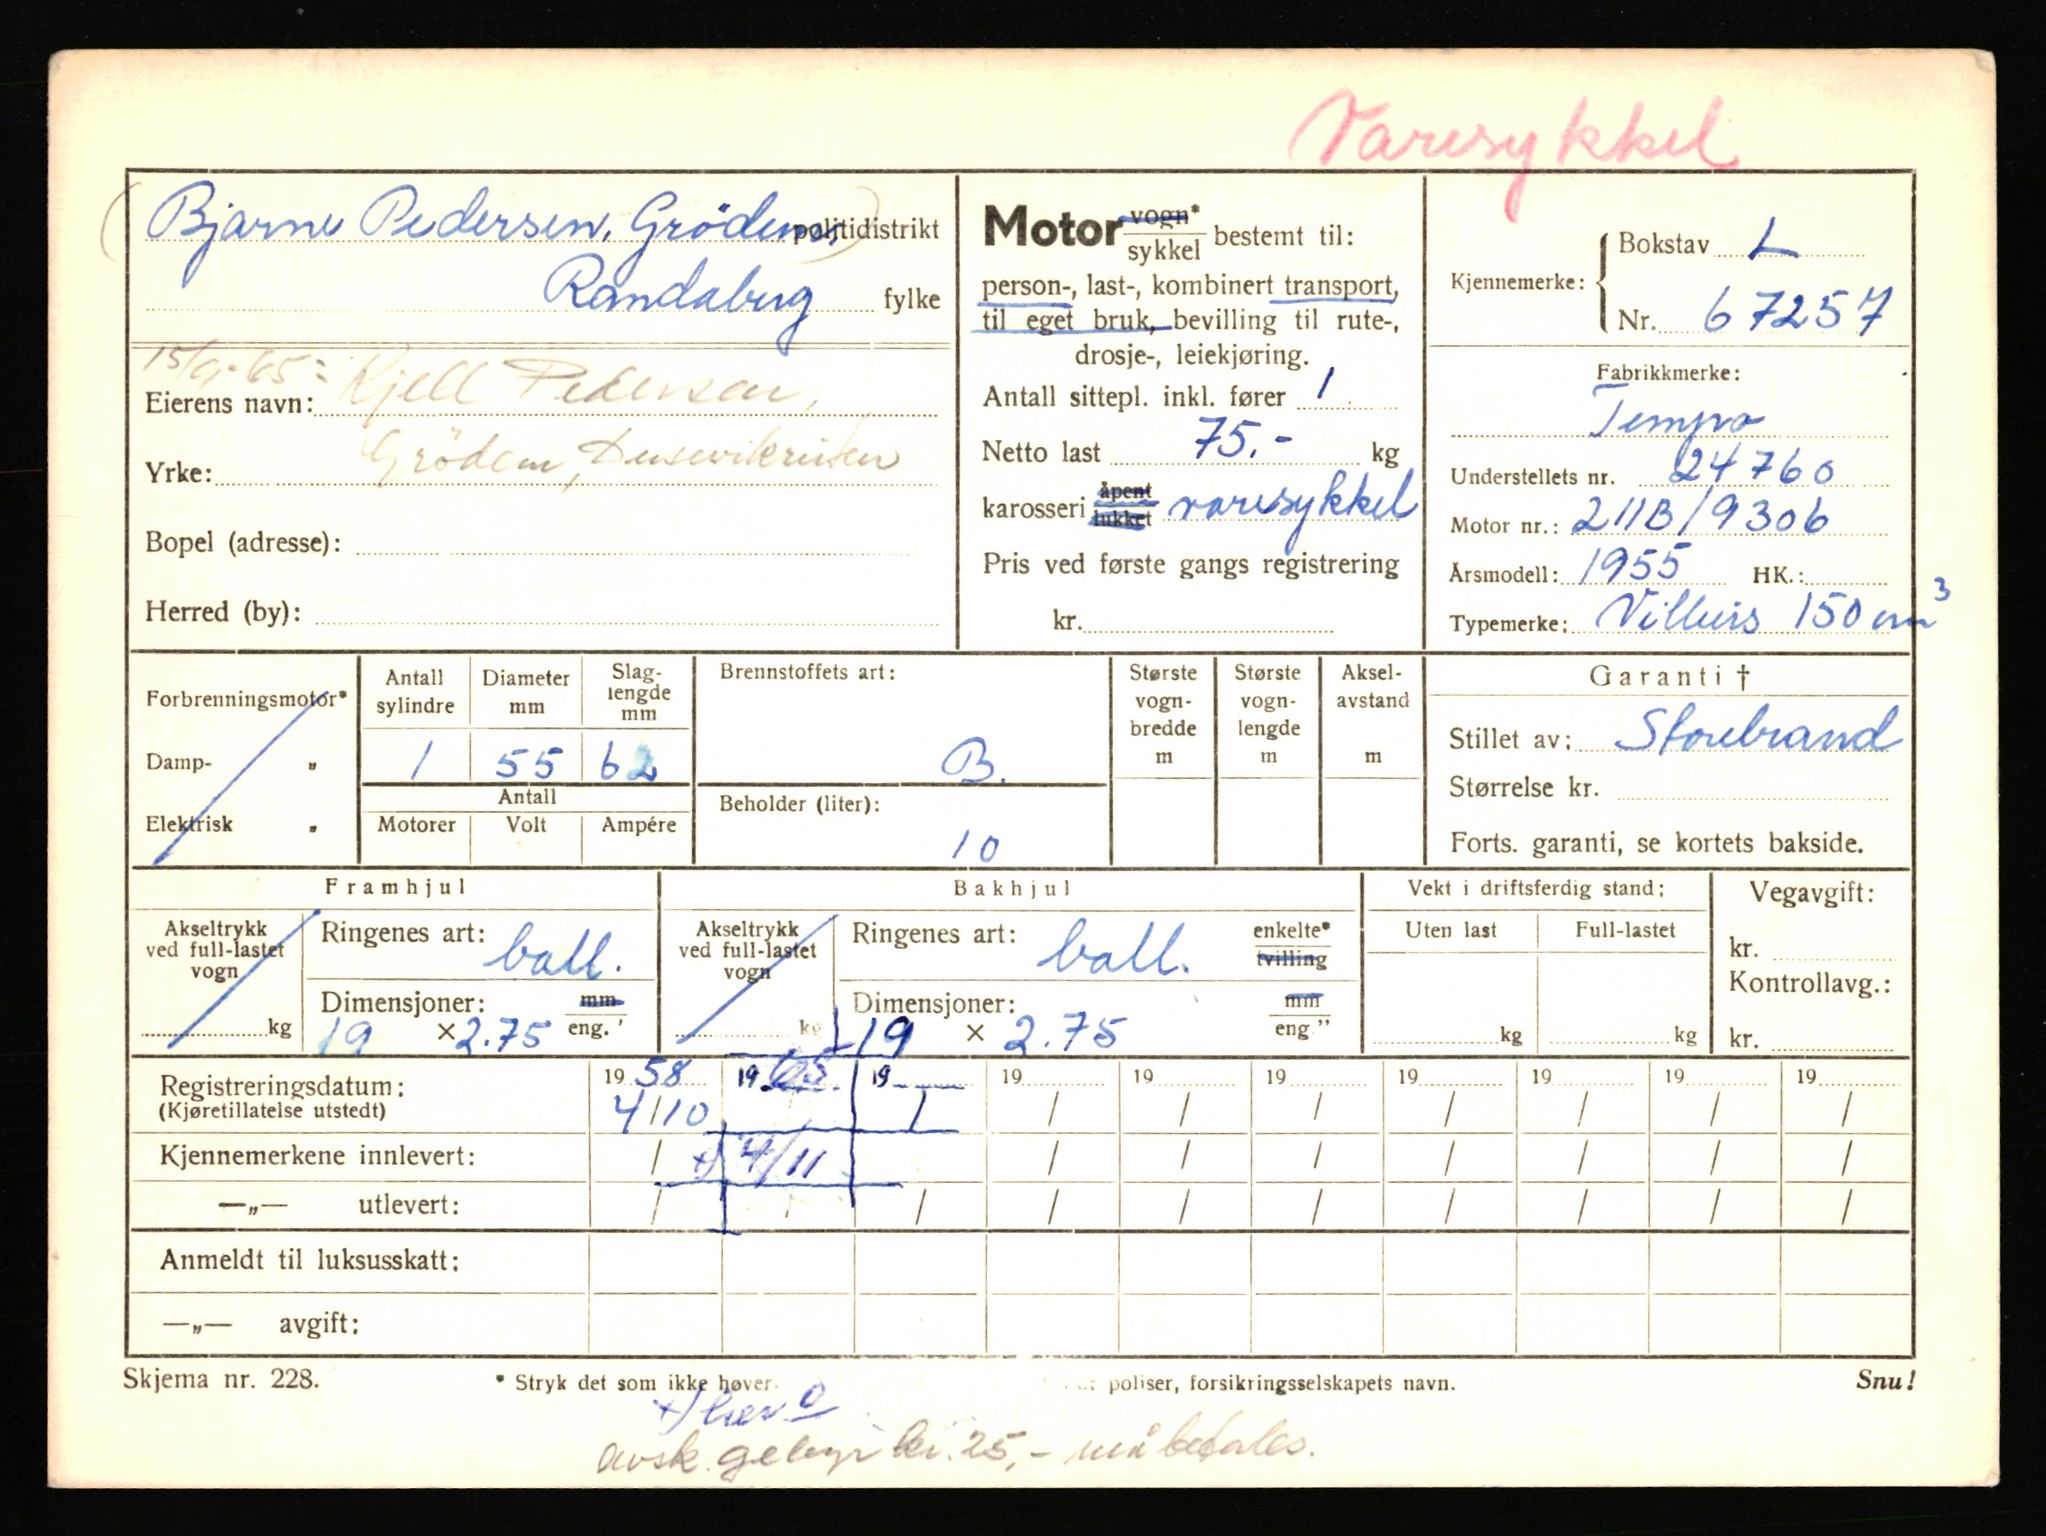 Varesykkel
(Bjarne Pedersen, Grödem,) politidistrikt
Randaberg fylke
15/9-65: Kjell Pedersen,
Eierens navn:
Grödem,
Yrke:
Bopel (adresse):
Herred (by):
Motor vogn* sykkel bestemt til:
person-, last-, kombinert transport,
til eget bruk, bevilling til rute-,
drosje-, leiekjøring.
Antall sittepl. inkl. fører 1
Netto last 75.- kg
karosseri åpent lukket varesykkel
Pris ved første gangs registrering
kr.
Kjennemerke: Bokstav L
Nr. 67257
Fabrikkmerke:
Tempo
Understellets nr. 24760
Motor nr.: 211B/9306
Årsmodell: 1955 HK.:
Typemerke: Villiers 150 cm³
Forbrenningsmotor*
Damp- "
Elektrisk "
Antall sylindre Diameter mm Slag-lengde mm
1 55 62
Antall
Motorer Volt Ampére
Brennstoffets art:
B.
Beholder (liter):
10
Største vogn-bredde m
Største vogn-lengde m
Aksel-avstand m
Garanti †
Stillet av: Storebrand
Størrelse kr.
Forts. garanti, se kortets bakside.
Framhjul
Akseltrykk ved full-lastet vogn kg
Ringenes art: ball.
Dimensjoner: mm eng. '
19 × 2.75
Bakhjul
Akseltrykk ved full-lastet vogn kg
Ringenes art: ball. enkelte* tvilling
Dimensjoner: mm eng "
19 × 2.75
Vekt i driftsferdig stand:
Uten last Full-lastet
kg kg
Vegavgift:
kr.
Kontrollavg.:
kr.
Registreringsdatum: 19 58 19 65 19 19 19 19 19 19 19 19
(Kjøretillatelse utstedt) 4/10 / / / / / / / /
Kjennemerkene innlevert: / x) 4/11 / / / / / / /
—„— utlevert: / / / / / / / / / /
Anmeldt til luksusskatt:
—„— avgift:
Skjema nr. 228. * Stryk det som ikke høver. poliser, forsikringsselskapets navn. Snu!
x)
avsk. gebyr kr. 25,- må betales.